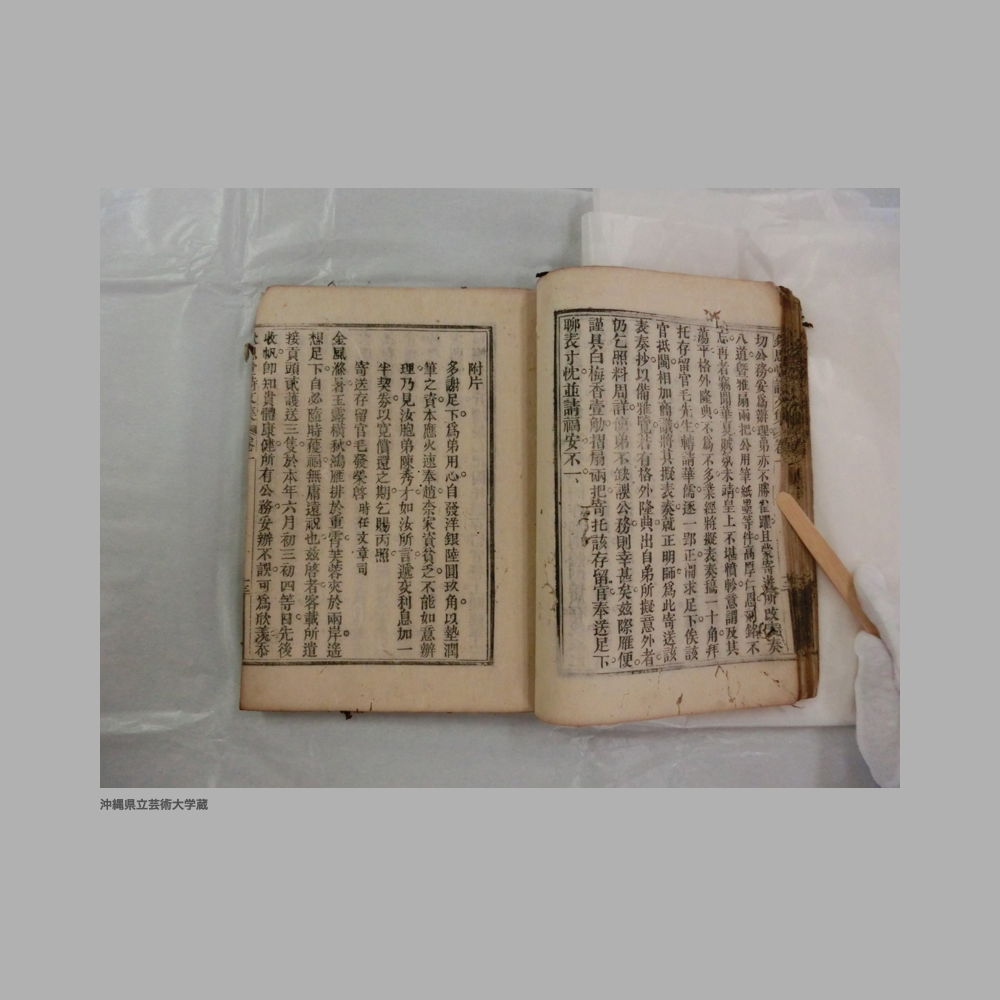 切公務妥為辦理弟亦不勝雀躍且蒙寄
八道曁雅扇兩把公用筆紙墨等件高厚仁恩刻銘不
忘再者竊聞華夏賊氛未靖皇上不堪軫意謂及其
蕩平格外隆典不為不多業經將擬表奏稿一十角拜
托存留官毛先生轉請華儒逐一郢正需求足下俟該
官抵閩相加會議將其擬表奏就正明師為此寄送該
表奏抄以備雅覽若有格外隆典出自弟所擬意外者
仍乞照料周詳俾弟不缺誤公務則幸甚矣茲際雁便
謹具白梅香壹觔摺扇兩把寄托該存留官奉送足下
聊表寸忱並請禔安不一
附片
多謝足下為弟用心自發洋銀陸圓玖角以墊潤
筆之資本應火速奉趙奈宋資貧乏不能如意辦
理乃見汝胞弟陳秀才如汝所言遞交利息加一
半契劵以寛償還之期乞賜丙照
寄送存留官毛發榮啓 時任文章司
金風滌暑玉露橫秋鴻雁排於重霄芙蓉夾於兩岸遙
想足下自必隨時獲福無庸遠祝也茲啓者客載所遣
接貢頭貳護送三隻於本年六月初三初四等日先後
收帆卽知貴體康健所有公務妥辦不誤可為欣羨恭
沖縄県立芸術大学蔵